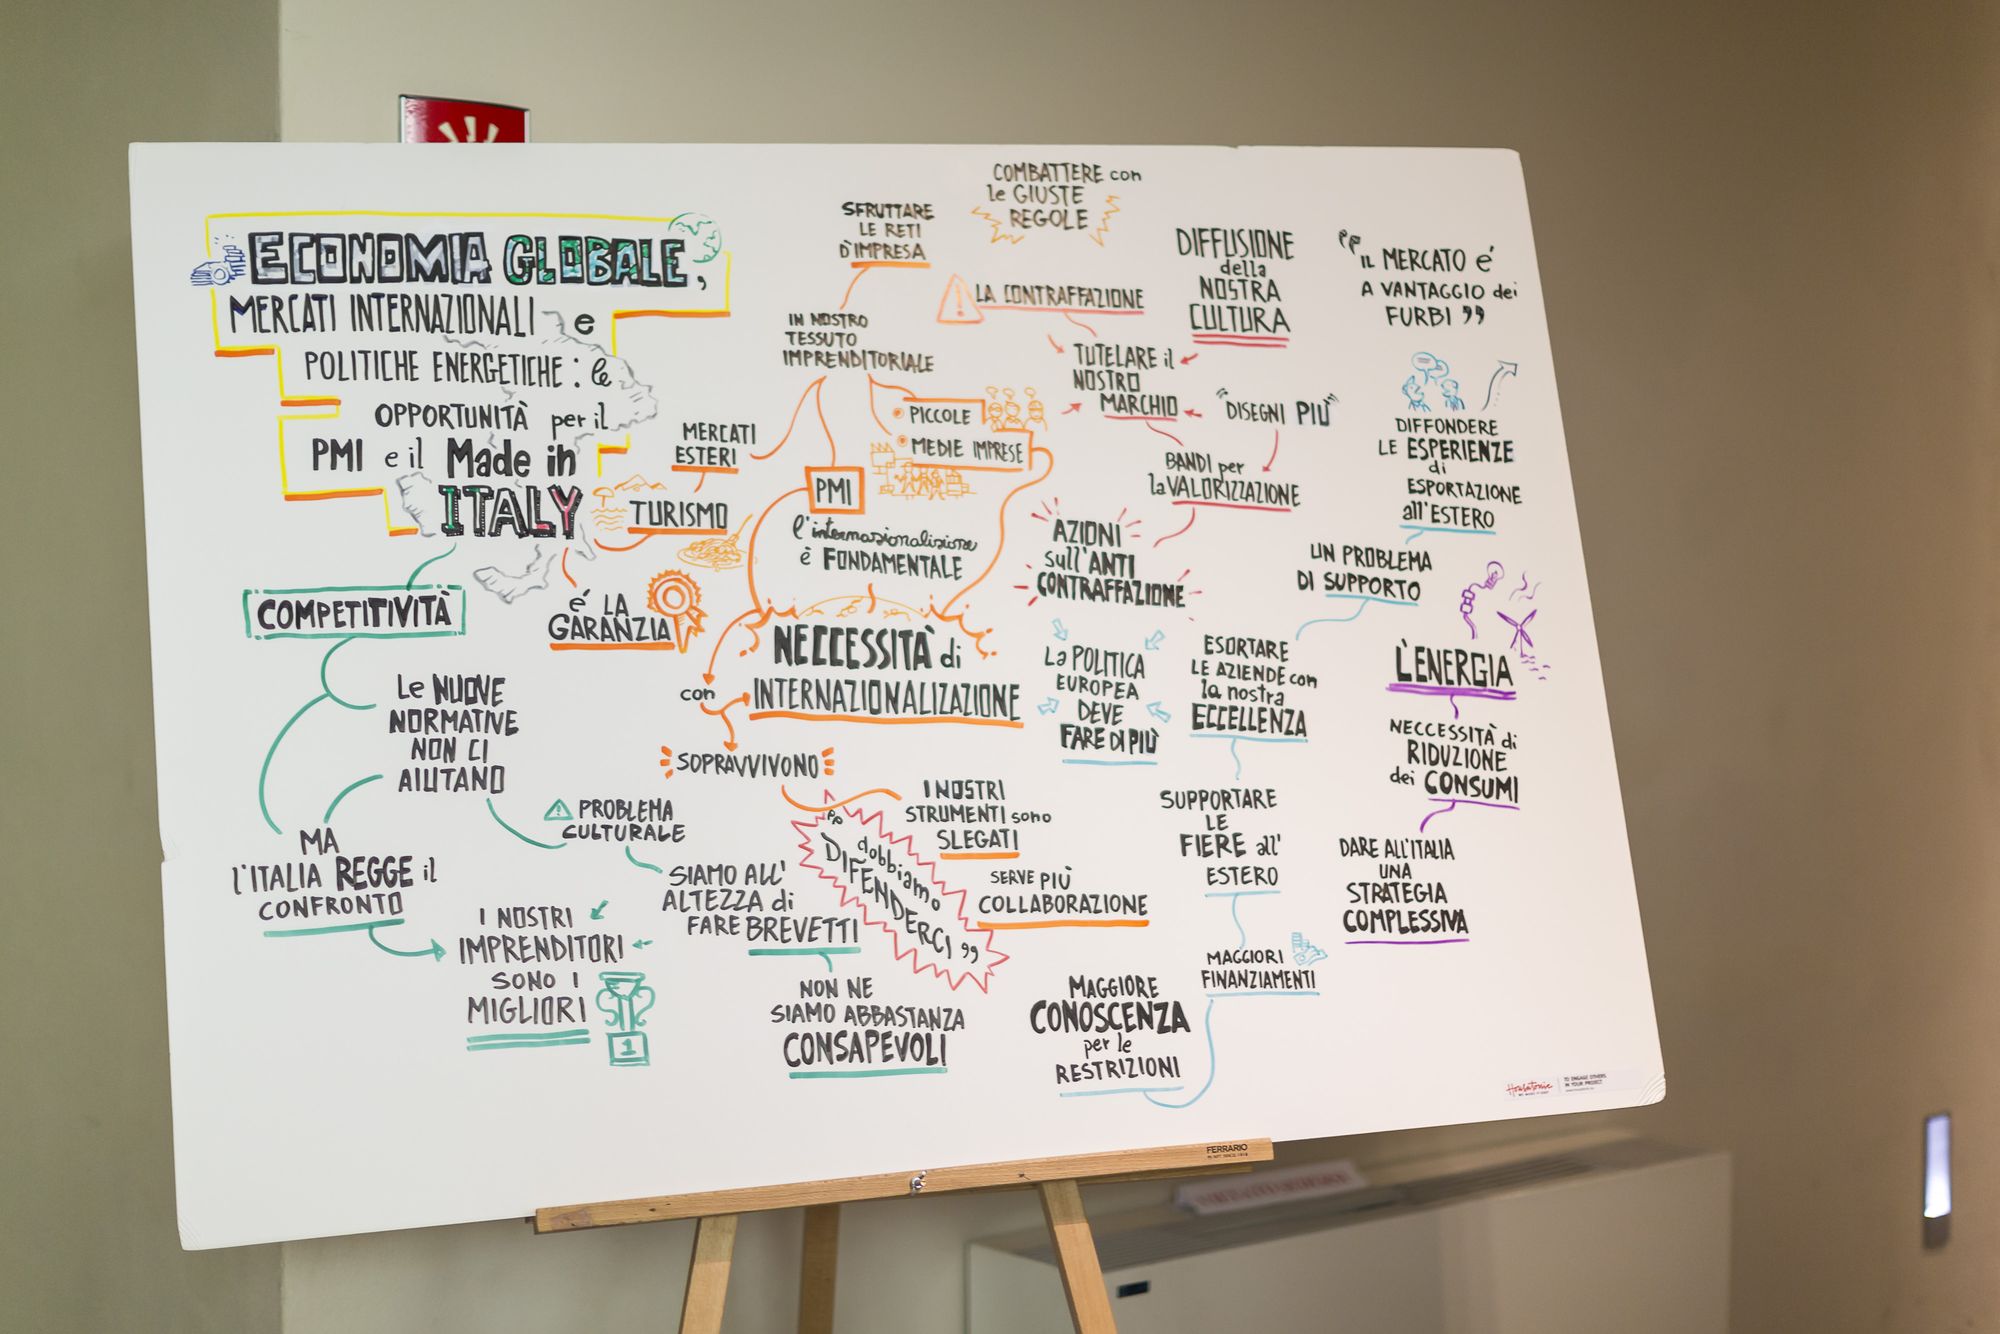 ECONOMIA GLOBALE,
MERCATI INTERNAZIONALI e
POLITICHE ENERGETICHE: le
OPPORTUNITÀ per il
PMI e il Made in
ITALY
COMPETITIVITÀ
Le NUOVE
NORMATIVE
NON CI
AIUTANO
MA
l'ITALIA REGGE il
CONFRONTO
I NOSTRI
IMPRENDITORI
SONO I
MIGLIORI
1
PROBLEMA
CULTURALE
SIAMO ALL'
ALTEZZA di
FARE BREVETTI
NON NE
SIAMO ABBASTANZA
CONSAPEVOLI
MERCATI
ESTERI
TURISMO
é LA
GARANZIA
SFRUTTARE
LE RETI
D'IMPRESA
IN NOSTRO
TESSUTO
IMPRENDITORIALE
PICCOLE
MEDIE IMPRESE
PMI
l'internazionalizione
è FONDAMENTALE
NECCESSITÀ di
INTERNAZIONALIZAZIONE
con
SOPRAVVIVONO
I NOSTRI
STRUMENTI sono
SLEGATI
SERVE PIÙ
COLLABORAZIONE
"dobbiamo
DIFENDERCI"
COMBATTERE con
le GIUSTE
REGOLE
LA CONTRAFFAZIONE
TUTELARE il
NOSTRO
MARCHIO
DIFFUSIONE
della
NOSTRA
CULTURA
"DISEGNI PIÙ"
BANDI per
la VALORIZZAZIONE
AZIONI
sull'ANTI
CONTRAFFAZIONE
La POLITICA
EUROPEA
DEVE
FARE DI PIÙ
"IL MERCATO é
A VANTAGGIO dei
FURBI"
DIFFONDERE
LE ESPERIENZE
di
ESPORTAZIONE
all'ESTERO
UN PROBLEMA
DI SUPPORTO
ESORTARE
LE AZIENDE con
la nostra
ECCELLENZA
SUPPORTARE
LE
FIERE all'
ESTERO
MAGGIORI
FINANZIAMENTI
MAGGIORE
CONOSCENZA
per le
RESTRIZIONI
L'ENERGIA
NECCESSITÀ di
RIDUZIONE
dei CONSUMI
DARE ALL'ITALIA
UNA
STRATEGIA
COMPLESSIVA
Housatonic
TO ENGAGE OTHERS
IN YOUR PROJECT
FERRARIO